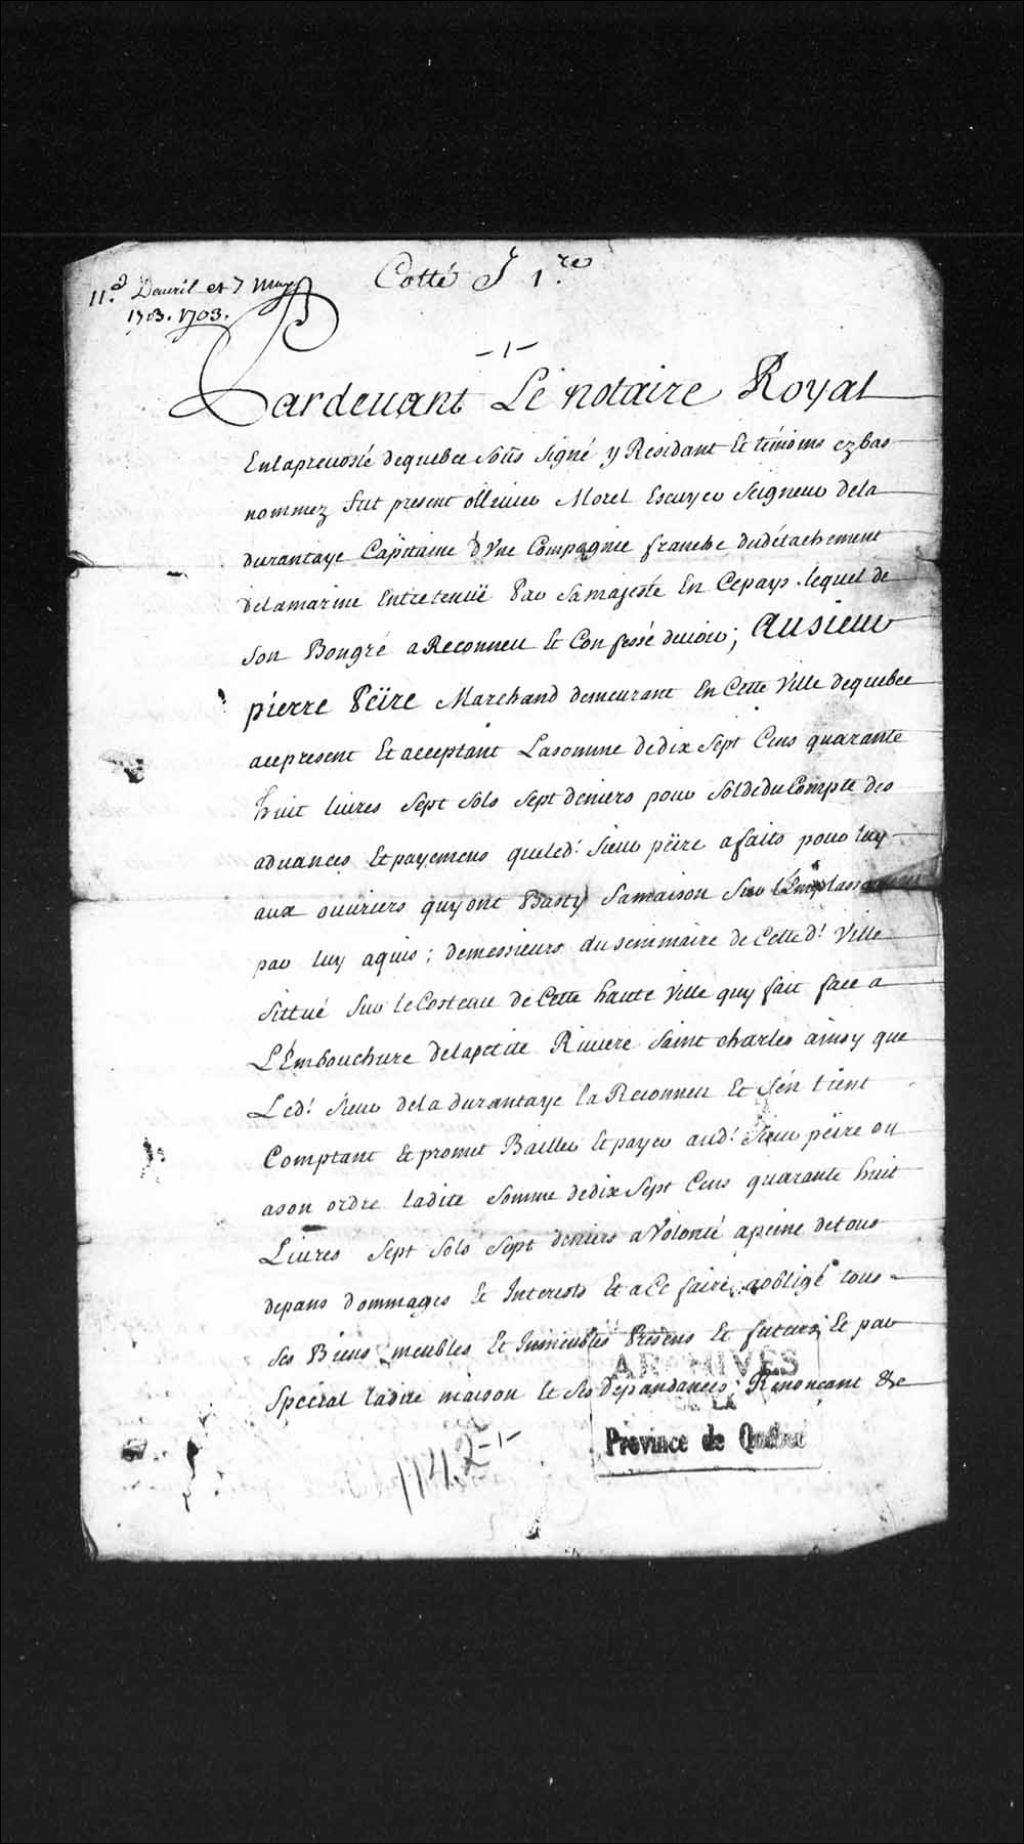 11.e Dauril et 7 may
1703. 1703.
Cotté J 1.re
-1-
Pardeuant Le notaire Royal
Enlapreuosté dequebec sous signé y Residant Et témoins cy bas
nommez fut present olliuier Morel Escuyer Seigneur dela
durantaye Capitaine d'vne Compagnie franche dudétachement
delamarine Entretenuë Par Samajesté En Cepays. lequel de
son Bongré a Reconneu Et Confessé deuoir; Ausieur
pierre Péire Marchand demeurant En Cette Ville dequebec
acepresent Et acceptant Lasomme dedix Sept Cens quarante
huit liures Sept sols Sept deniers pour Soldedu Compte des
aduances Etpayemens queled.t Sieur péire afaits pour luy
aux ouuriers quyont Basty Samaison Sur
par luy aquis; demessieurs du seminaire de Cette d.t Ville
Sittué Sur le Costeau de Cette haute Ville quy fait face a
L'Embouchure delapetite Riuiere Saint charles ainsy que
Led.t Sieur dela durantaye la Reconneu Et s'en tient
Comptant Et promet Bailler Etpayer aud.t Sieur péire ou
ason ordre ladite Somme dedix Sept Cens quarante huit
Liures Sept Sols Sept deniers a Volonté apeine detous
depans dommages Et Interests Et a Ce faire aobligé tous
Ses Biens meubles Et Immeubles Presens Et futurs; Et par
Special ladite maison Et Ses Dépandances; Renonceant &c
ARCHIVES
DE LA
Province de Québec
1142-1-